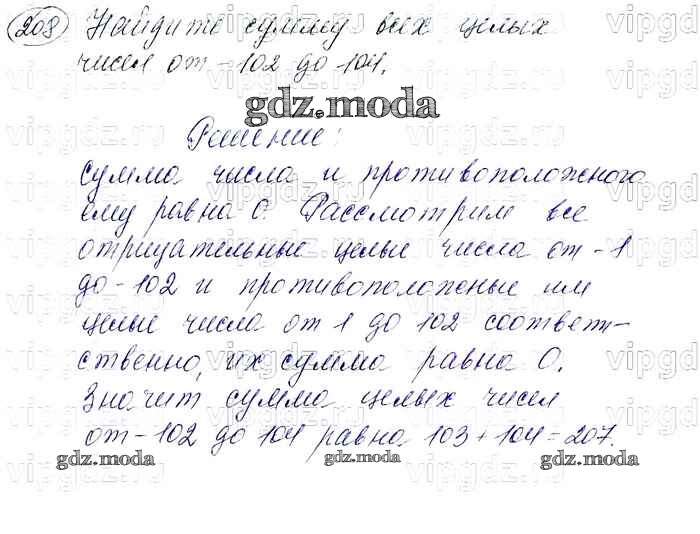 208 Найдите сумму всех целых
чисел от -102 до 104.
gdz.moda
Решение:
Сумма числа и противоположного
ему равна 0. Рассмотрим все
отрицательные целые числа от -1
до -102 и противоположные им
целые числа от 1 до 102 соответ-
ственно, их сумма равна 0.
Значит сумма целых чисел
от -102 до 104 равна 103 + 104 = 207.
gdz.moda gdz.moda gdz.moda